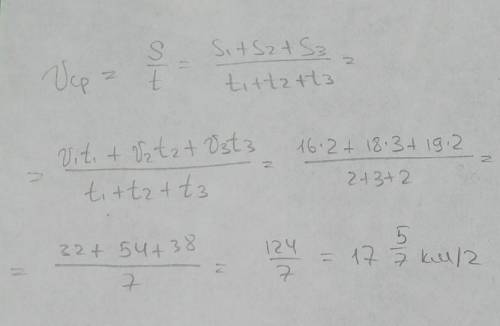 Vср = S/t = (S₁+S₂+S₃)/(t₁+t₂+t₃) =
= (V₁t₁ + V₂t₂ + V₃t₃)/(t₁+t₂+t₃) = (16·2 + 18·3 + 19·2)/(2+3+2) =
= (32 + 54 + 38)/7 = 124/7 = 17 5/7 км/г